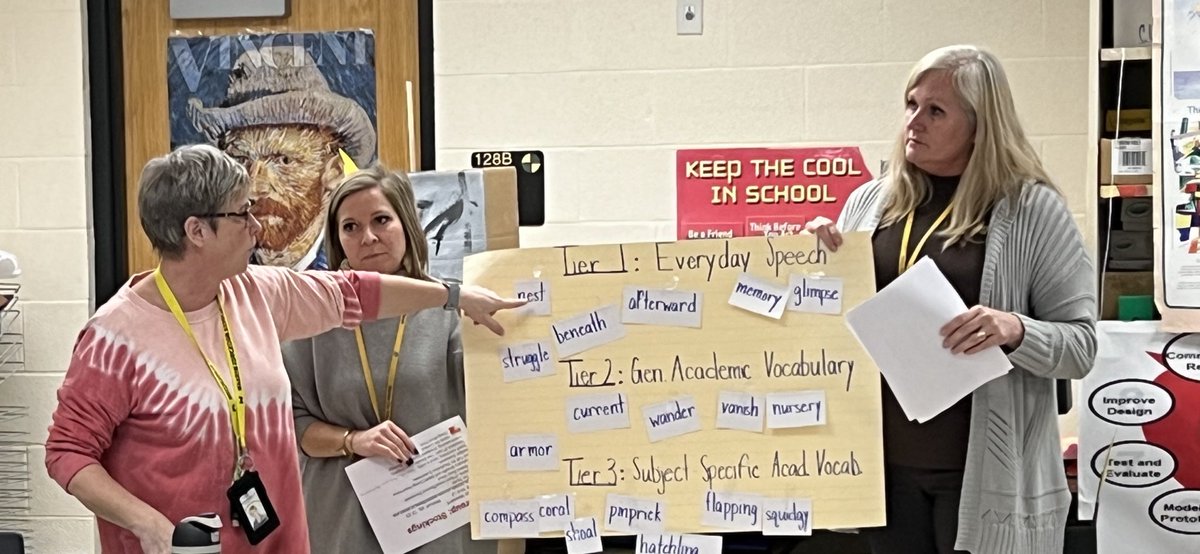 VINCENT
128B
KEEP THE COOL
IN SCHOOL
Be a Friend
Think Before
Tier 1: Everyday Speech
nest
afterward
memory
glimpse
beneath
struggle
Tier 2: Gen. Academic Vocabulary
current
wander
vanish
nursery
armor
Tier 3: Subject Specific Acad. Vocab.
compass
coral
shoal
pinprick
flapping
squidgy
hatchling
Group: Stockings
Improve
Design
Test and
Evaluate